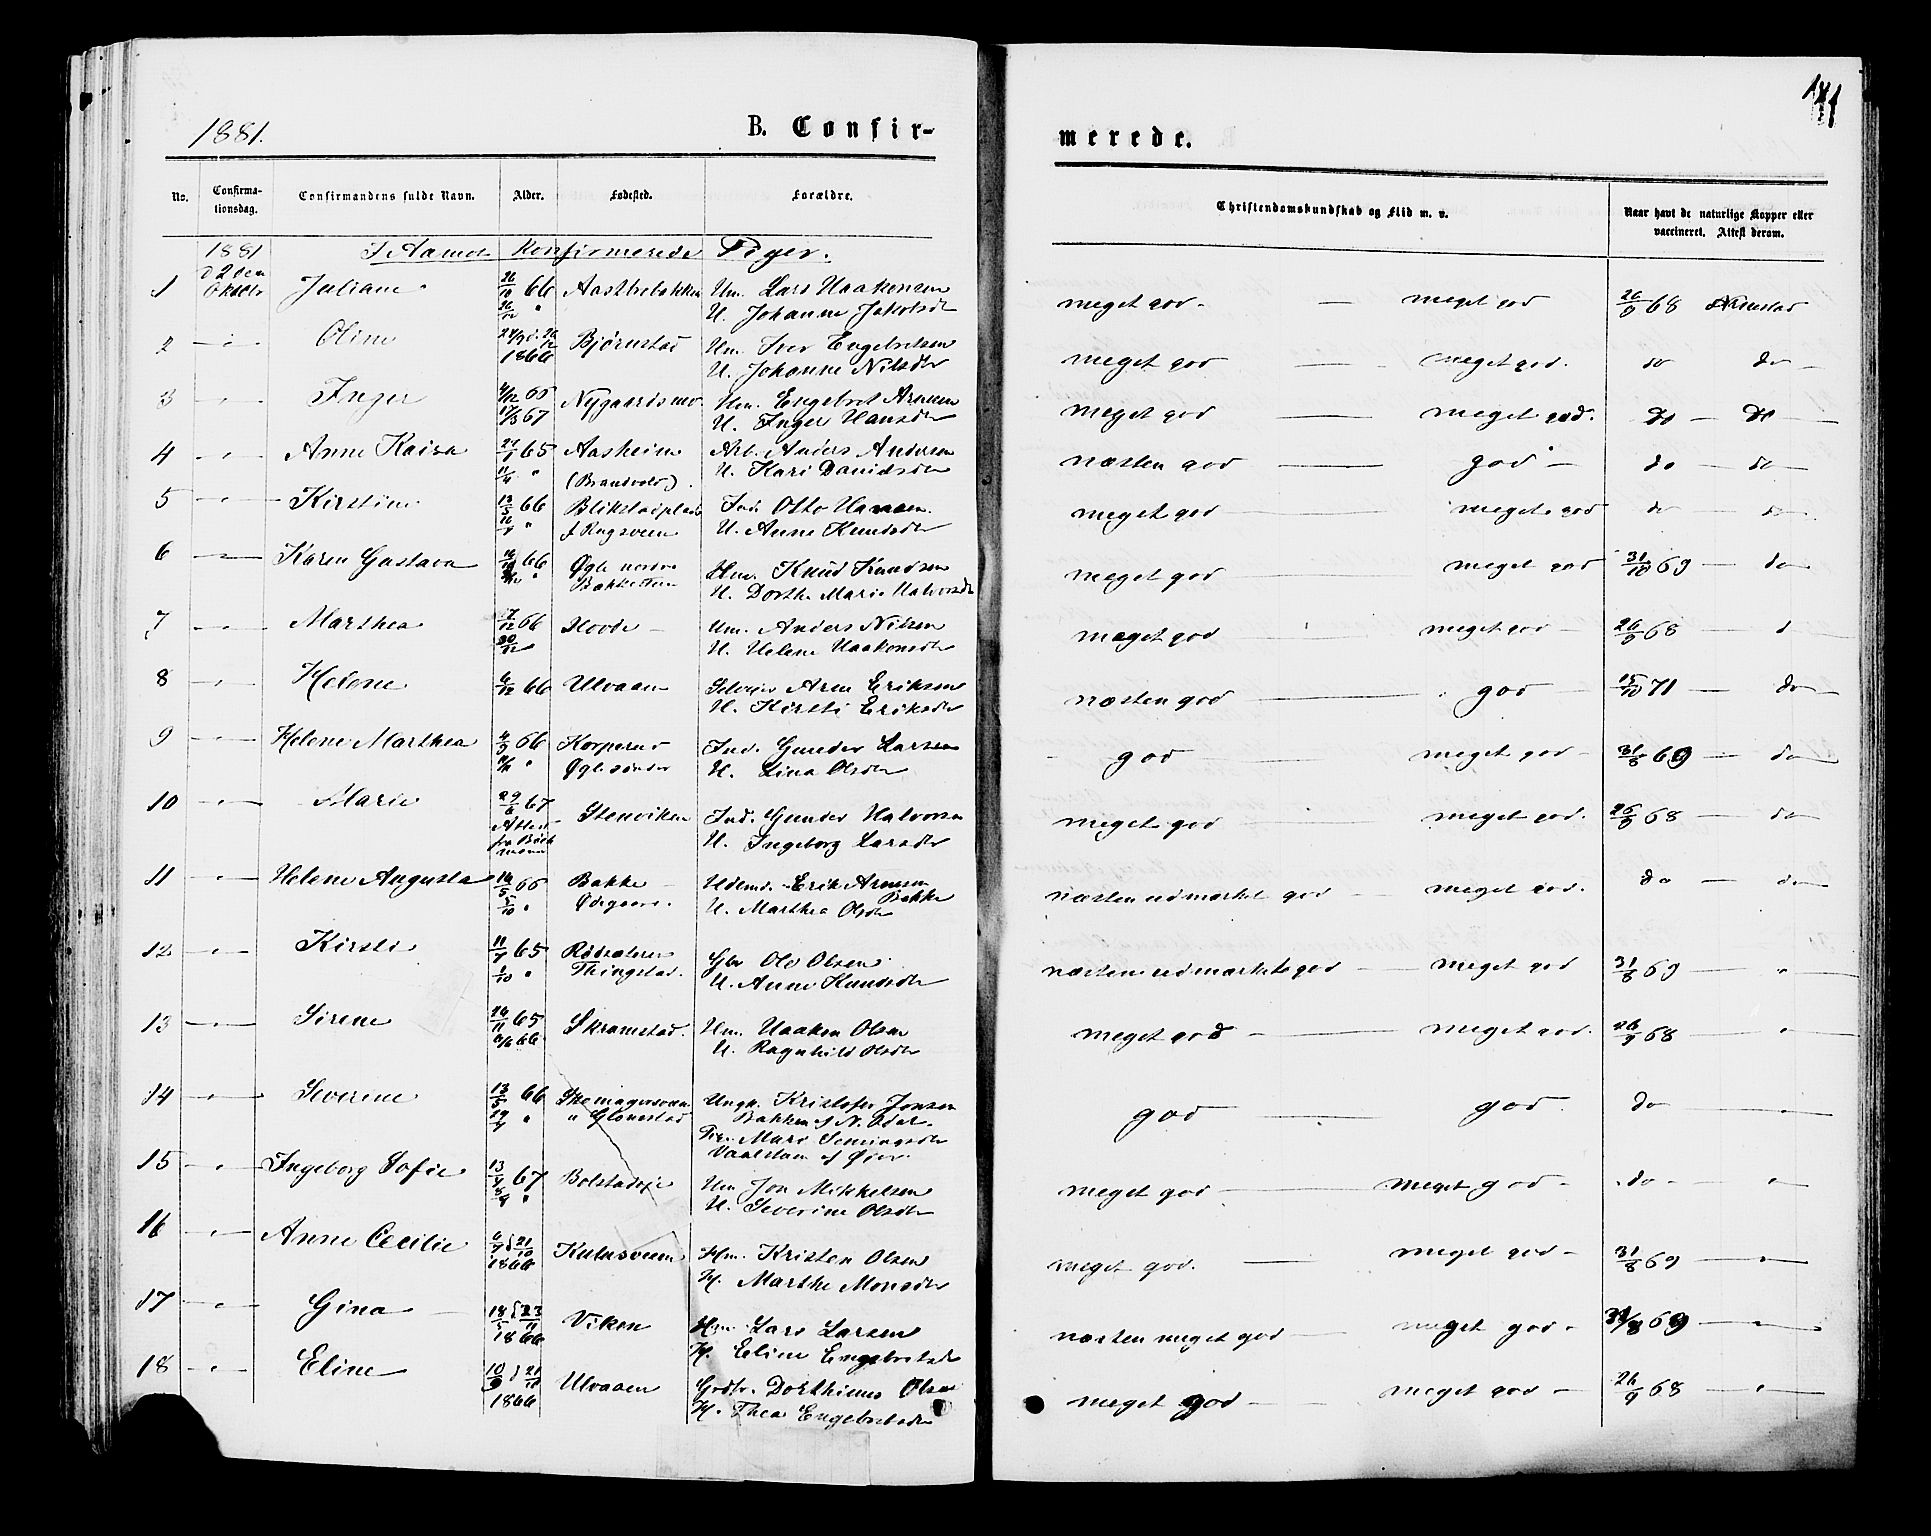 1881.
B. Confir-
merede.
141
No.
Confirma-
tionsdag.
Confirmandens fulde Navn.
Alder.
Fødested.
Forældre.
Christendomskundskab og Flid m. v.
Naar havt de naturlige Kopper eller
vaccineret. Attest derom.
1881 I Aamot Konfirmerede Piger.
1 Juliane 66 Aastebakken Hm. Lars Haakonsen
H. Johanne Jakobsdtr
meget god - meget god 26/9 68
2 Oline 1866 Bjørnstad Hm. Iver Engebretsen
H. Johanne Nilsdtr
meget god - meget god. do do
3 Inger 67 Nygaardsmo Hm. Engebret Arnesen
H. Inger Hansdtr
meget god - meget god. do - do
4 Anne Kaisa 65 Aasheim Arb. Anders Andersen
(Brandvold). H. Kari Danielsdtr
næsten god - god - do - do
5 Kirstine 13/5 66 Blikstadplads Ind. Otto Hansen.
H. Anne Knudsdtr
meget god - meget god do - do
6 Karen Gustava 66 Øgle nordre Hm. Knud Knudsen
Bakketun H. Dorthe Marie Halvorsdtr
meget god - meget god 31/8 69 - do
7 Marthea 17/12 66 Hovde Hm. Anders Nilsen
H. Helene Haakonsdtr
meget god - meget god - 26/9 68 - d
8 Helene 6/12 66 Ulvaaen Selveier Arne Eriksen
H. Kirsti Eriksdtr
næsten god - god 15/10 71 - do
9 Helene Marthea 4/9 66 Korperud Ind. Gunder Larsen
Øgle søndre H. Lina Olsdtr
god - meget god - 31/8 69 - do
10 Marie 29/6 67 Stenviken Ind. Gunder Halvorsen
Attest H. Ingeborg Larsdtr
meget god - meget god. 26/9 68 - do
11 Helene Augusta 66 Bakke Erik Arnesen
Bakke
Ødegaard. H. Marthea Olsdtr
næsten udmærket god - meget god. do - do
12 Kirsti 11/7 65 Rødsæteren Gbr Ole Olsen
Thingstad. H. Anne Knudsdtr
næsten udmærket god - meget god 31/8 69 - "
13 Sirene 65 Skramstad. Hm. Haaken Olsen
66 H. Ragnhild Olsdtr
meget god - meget god. 26/9 68 - "
14 Severine 13/5 66 Skomagersveen Ungk. Kristofer Jonsen
" Glomstad Bakken af N. Odal.
Pige Mari Semingsdtr
af Øier
god - god. do - "
15 Ingeborg Sofie 13/4 67 Bolstadeie Hm Jon Mikkelsen
H. Severine Olsdtr
meget god - meget god - do - "
16 Anne Cecilie 1866 Kulusveen Hm. Kristen Olsen
H. Marthe Monsdtr
meget god. - meget god - 31/8 69 - "
17 Gina 1866 Viken Hm. Lars Larsen
H. Eline Engebretsdtr
næsten meget god - meget god - 31/8 69 - "
18 Eline 1866 Ulvaaen Gbr. Dorthinus Olsen
H. Thea Engebretsdtr
meget god - meget god - 26/9 68 - "